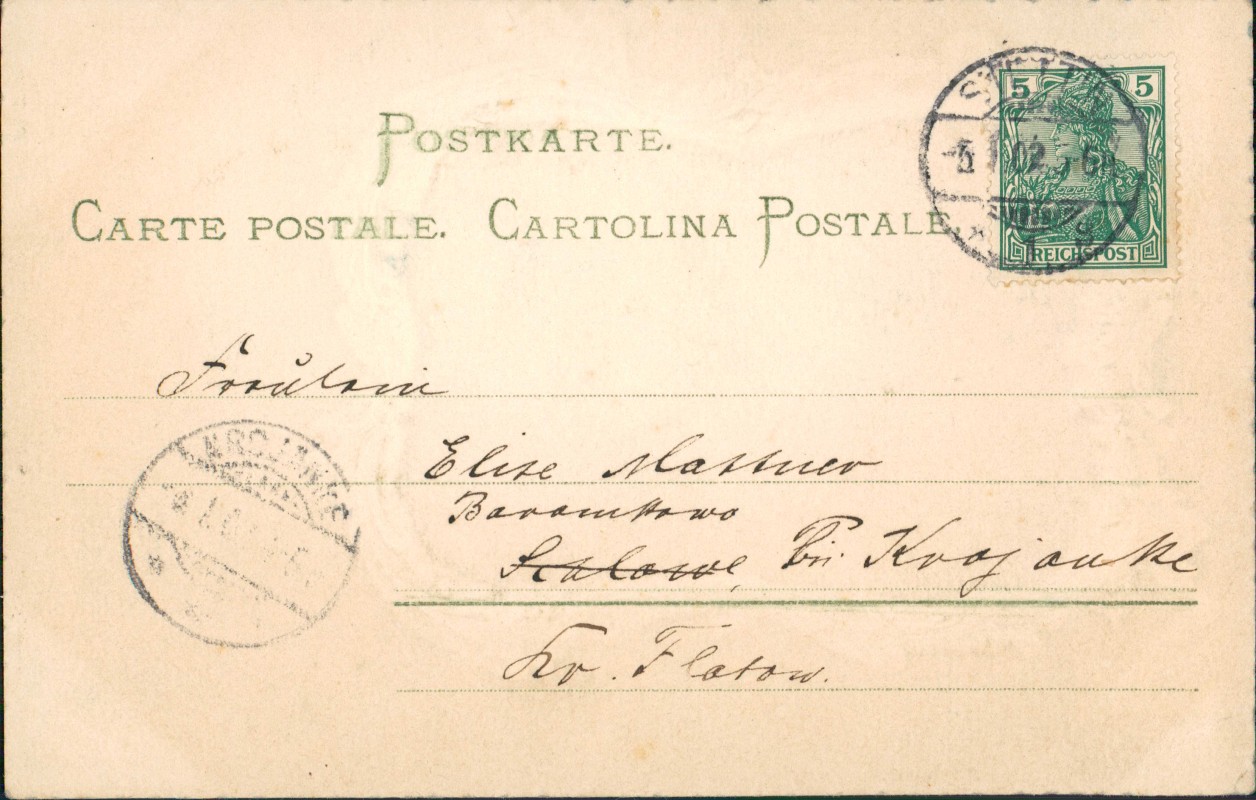 POSTKARTE.
CARTE POSTALE. CARTOLINA POSTALE.
5 5
STETTIN
5 1 02
1
REICHSPOST
Fräulein
Elise Mattner
Baramkowo
Skalowe, Bei Krojanke
Kr. Flatow.
KROJANKE